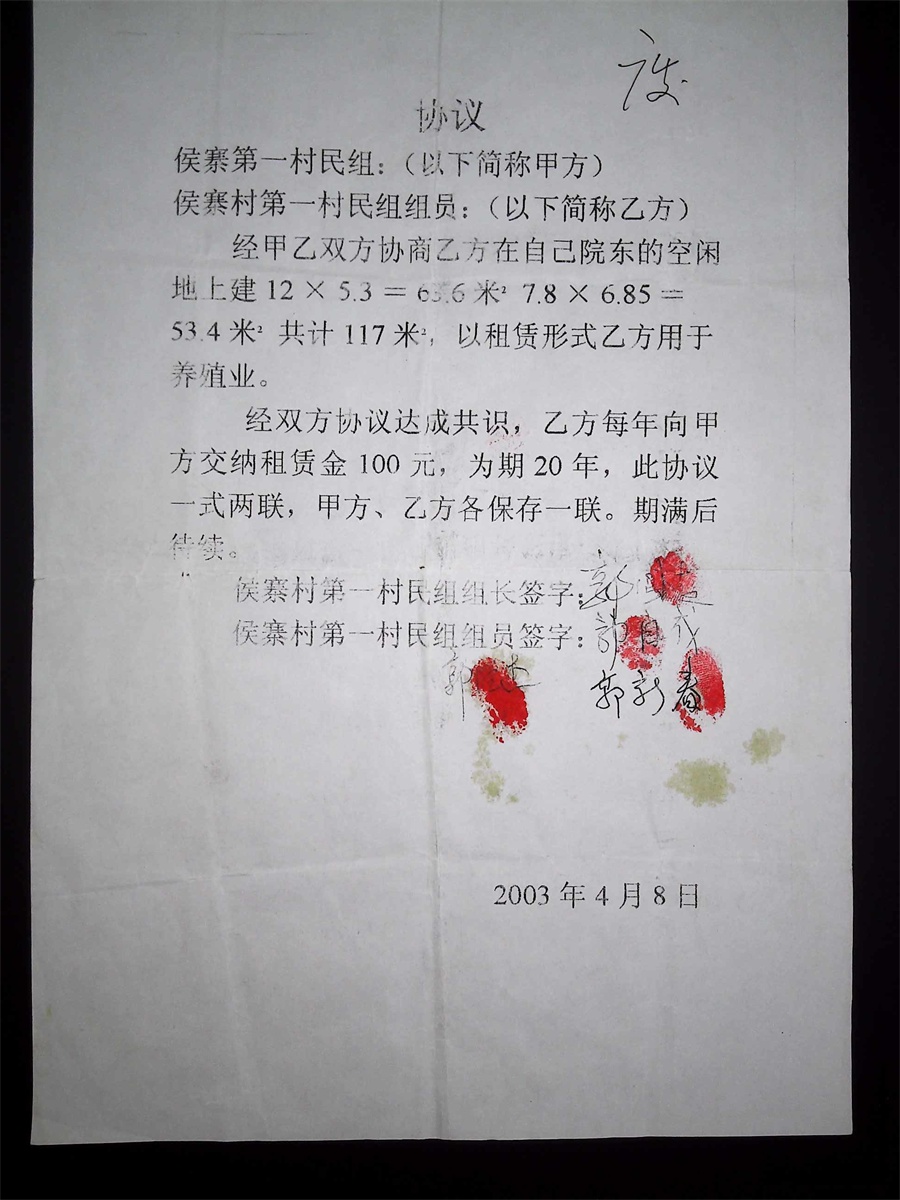 废
协议
侯寨第一村民组：（以下简称甲方）
侯寨村第一村民组组员：（以下简称乙方）
经甲乙双方协商乙方在自己院东的空闲
地上建 12 × 5.3 ＝ 63.6 米² 7.8 × 6.85 ＝
53.4 米² 共计 117 米²，以租赁形式乙方用于
养殖业。
经双方协议达成共识，乙方每年向甲
方交纳租赁金 100 元，为期 20 年，此协议
一式两联，甲方、乙方各保存一联。期满后
待续。
侯寨村第一村民组组长签字：郭
侯寨村第一村民组组员签字：郭自
郭 郭新春
2003 年 4 月 8 日